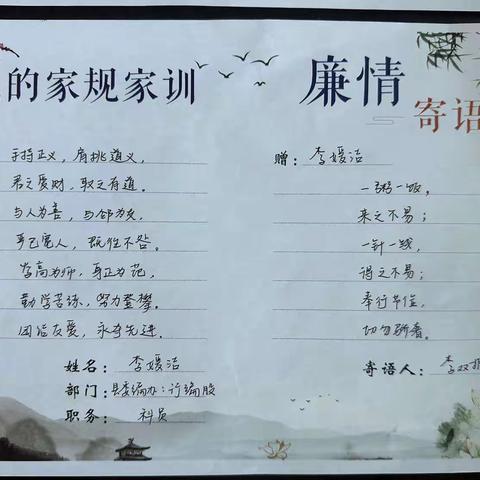 的家规家训
手持正义，肩挑道义，
君之爱财，取之有道。
与人为善，与邻为友，
严己宽人，既往不咎。
学高为师，身正为范，
勤学苦练，努力登攀。
团结友爱，永争先进。
姓名：李媛洁
部门：县委编办：行编股
职务：科员
廉情
寄语
赠：李媛洁
一粥一饭，
来之不易；
一针一线，
得之不易；
奉行节俭，
切勿骄奢。
寄语人：李双